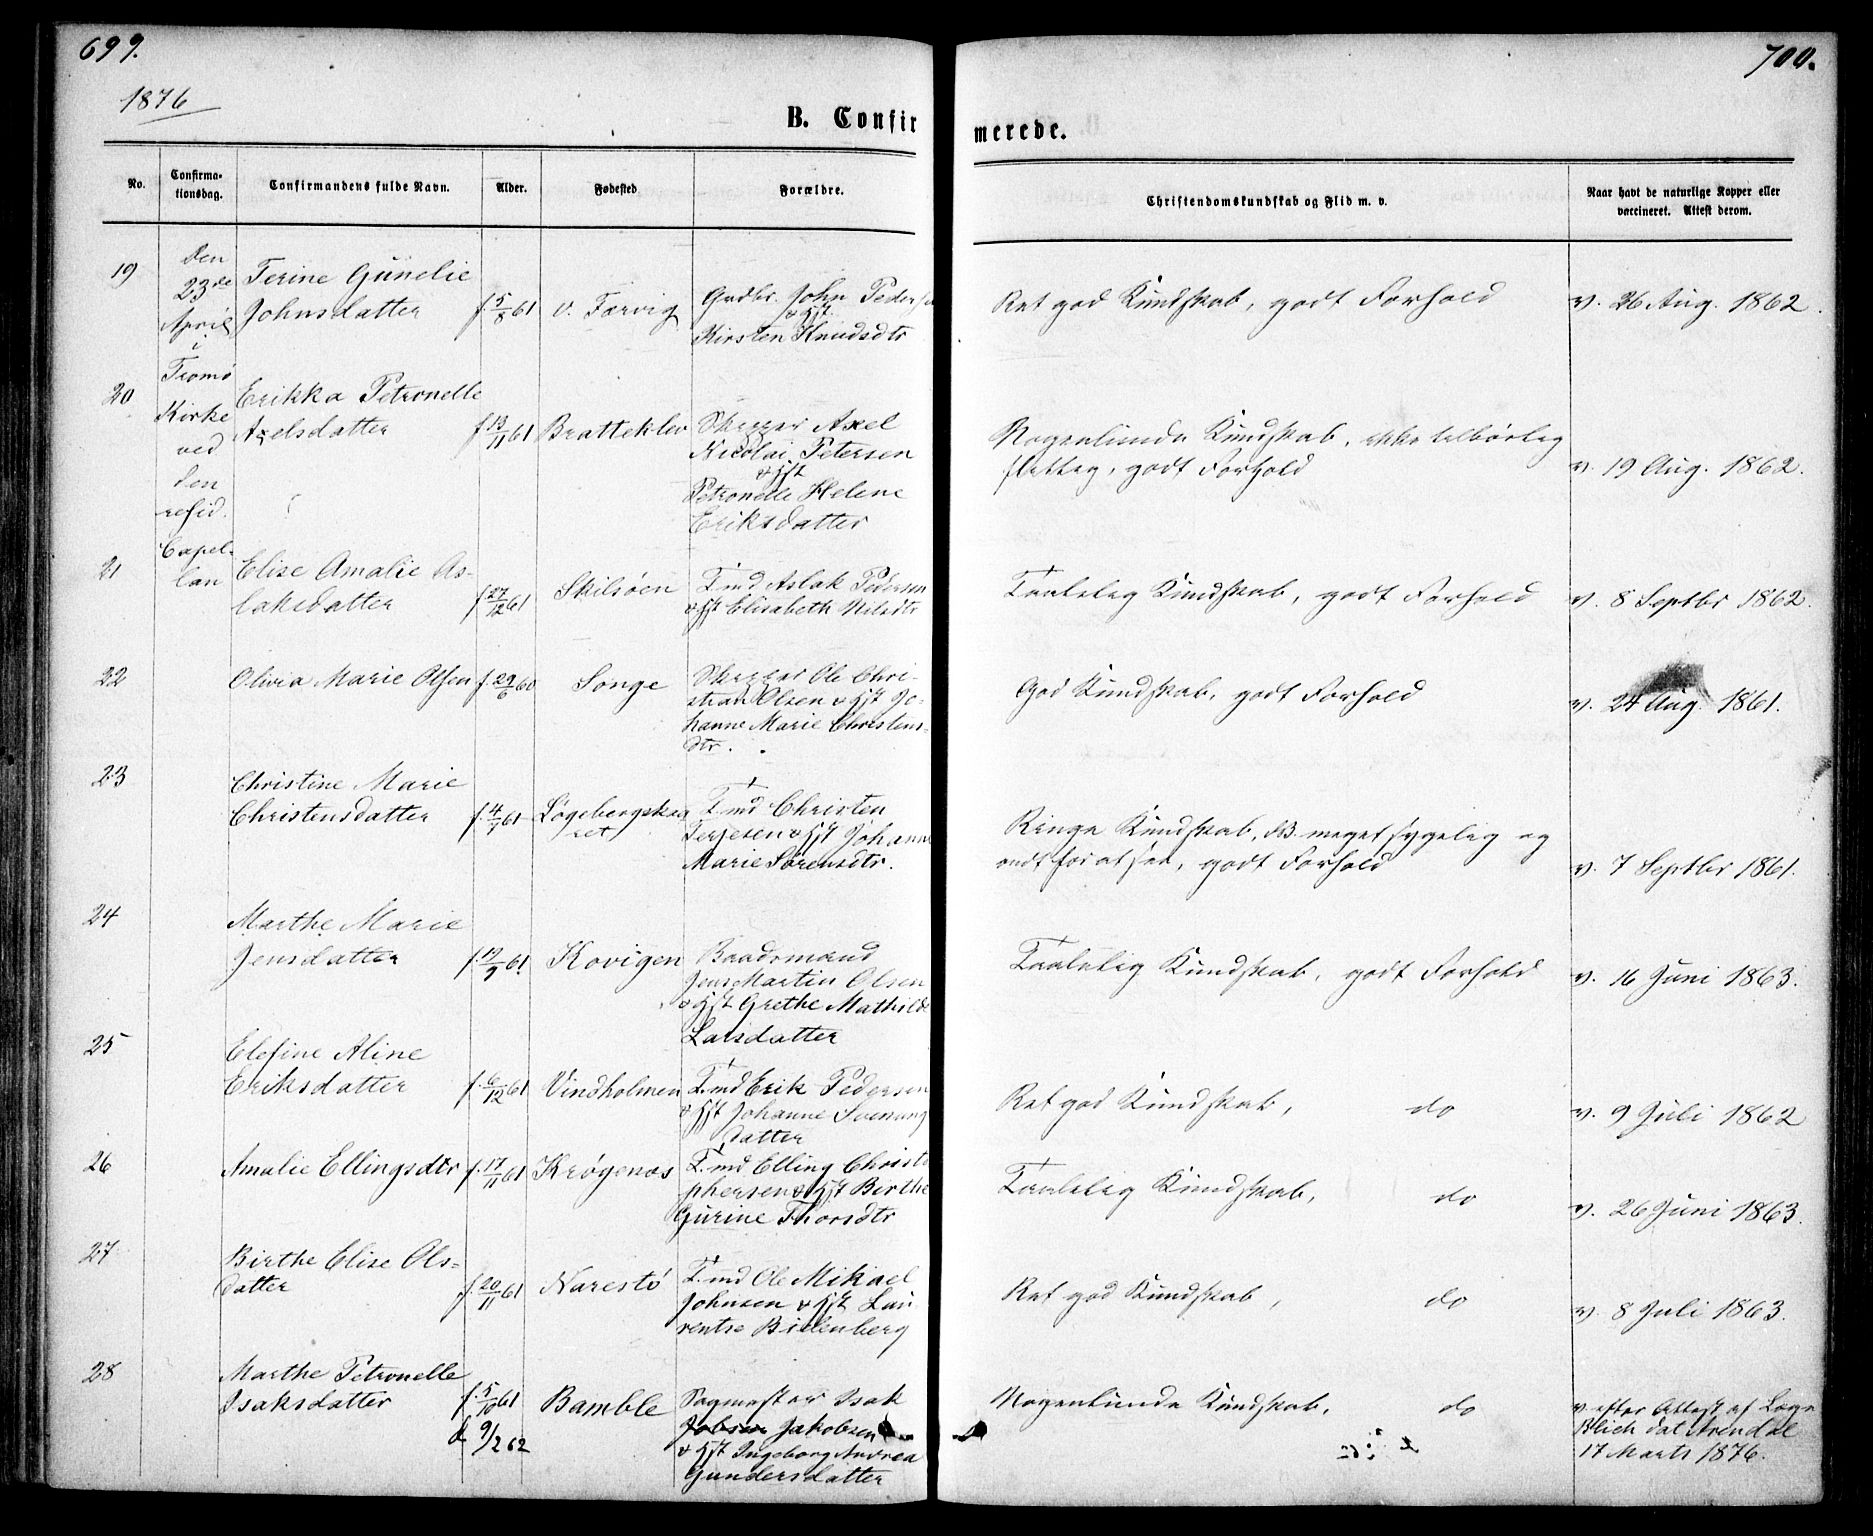 699.
700.
1876
B. Confir
merede.
No.
Confirma-
tionsdag.
Confirmandens fulde Navn.
Alder.
Fødested
Forældre.
Christendomskundskab og Flid m. v.
Naar havt de naturlige Kopper eller
vaccineret. Attest derom.
Den
23de
April
i
Tromø
Kirke
ved
den
resid.
Capel-
lan
19
Terine Gunelie
Johnsdatter
f. 5/8 61
v. Færvig
Gudbr. John Peders
& Hst.
Kirsten Knudsdtr
Ret god Kundskab, godt Forhold
v. 26 Aug. 1862.
20
Erikka Petronelle
Axelsdatter
f 13/11 61
Bratteklev
Skipper Axel
Nicolai Petersen
& Hst
Petronelle Helene
Eriksdatter
Nogenlunde Kundskab, ikke tilbørlig
flittig, godt Forhold
v. 19 Aug. 1862.
21
Elise Amalie As-
laksdatter
f 27/12 61
Skilsøen
T.md Aslak Pedersen
& Hst Elisabeth Nilsdtr
Taalelig Kundskab, godt Forhold
v. 8 Septbr 1862.
22
Olivia Marie Olsen
f. 29/6 60
Songe
Skipper Ole Chri-
stian Olsen & Hst Jo-
hanne Marie Christens-
dtr.
God Kundskab, godt Forhold
v. 24 Aug. 1861.
23
Christine Marie
Christensdatter
f. 4/7 61
Løgebergskja
ret
T.md Christen
Terjesen & Hst Johann
Marie Sørensdtr.
Ringe Kundskab, NB meget sygelig og
ondt for at see, godt Forhold
v. 7 Septbr 1861.
24
Marthe Marie
Jensdatter
f. 19/9 61
Kovigen
Baadsmand
Jens Martin Olsen
& Hst Grethe Mathilde
Larsdatter
Taalelig Kundskab, godt Forhold
v. 16 Juni 1863.
25
Elefine Aline
Eriksdatter
f. 6/12 61
Vindholmen
T.md Erik Pedersen
& Hst Johanne Svenung
datter
Ret god Kundskab, do
v. 9 Juli 1862
26
Amalie Ellingsdtr
f. 17/11 61
Krøgenæs
T.md Elling Christo
phersen & Hst Birthe
Gurine Thorsdtr
Taalelig Kundskab, do
v. 26 Juni 1863.
27
Birthe Elise Ols-
datter
f. 20/11 61
Narestø
T.md Ole Mikael
Johnsen & Hst Lau
rentse Bielenberg
Ret god Kundskab, do
v. 8 Juli 1863.
28
Marthe Petronelle
Isaksdatter
f. 5/10 61
d 9/2 62
Bamble
Sagmester Isak
Jobsen Jakobsen
& Hst Ingeborg Andrea
Gundersdatter
Nogenlunde Kundskab, do
v. efter Attest af Læge
Blich dat Arendal
17 Marts 1876.